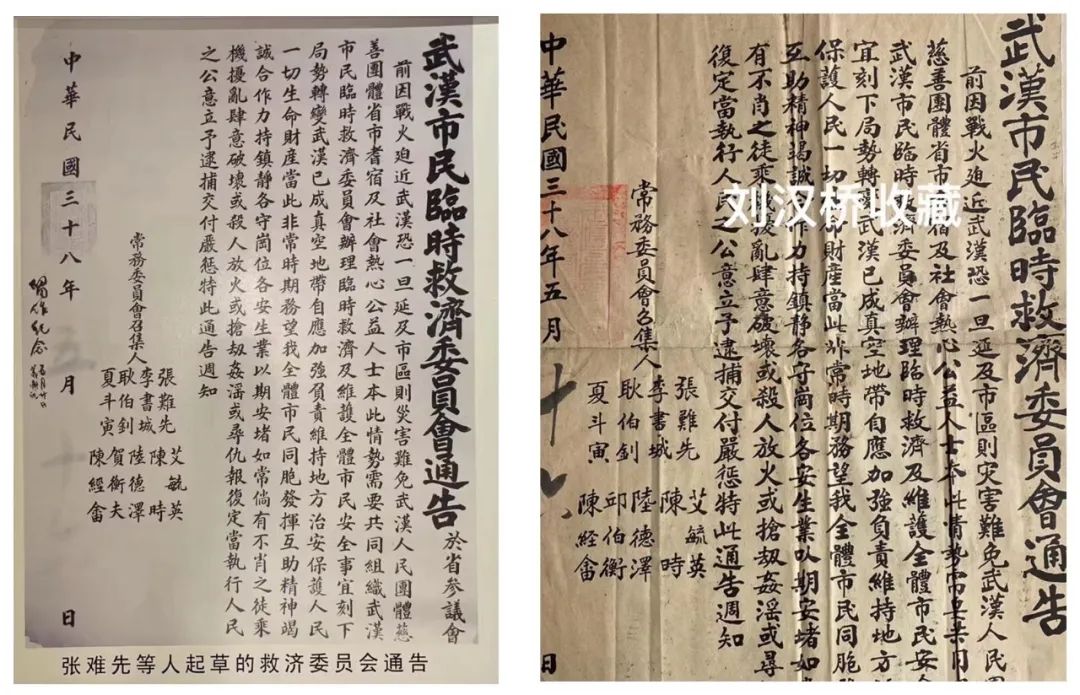 武漢市民臨時救濟委員會通告
於省參議會
前因戰火迫近武漢恐一旦延及市區則災害難免武漢人民團體慈
善團體省市耆宿及社會熱心公益人士本此情勢需要共同組織武漢
市民臨時救濟委員會辦理臨時救濟及維護全體市民安全事宜刻下
局勢轉變武漢已成真空地帶自應加強負責維持地方治安保護人民
一切生命財產當此非常時期務望我全體市民同胞發揮互助精神竭
誠合作力持鎮静各守崗位各安生業以期安堵如常倘有不肖之徒乘
機擾亂肆意破壞或殺人放火或搶劫姦淫或尋仇報復定當執行人民
之公意立予逮捕交付嚴懲特此通告週知
常務委員會召集人
張難先 艾毓英
李書城 陳時
耿伯釗 陸德澤
夏斗寅 賀衡夫
陳經畬
中華民國三十八年五月十日
留作紀念
张难先等人起草的救济委员会通告
武漢市民臨時救濟委員會通告
前因戰火迫近武漢恐一旦延及市區則灾害難免武漢人民團
慈善團體省市耆宿及社會熱心公益人士本此情勢需
武漢市民臨時救濟委員會辦理臨時救濟及維護全體市民安
宜刻下局勢轉變武漢已成真空地帶自應加強負責維持地方
保護人民一切財產當此非常時期務望我全體市民同胞
互助精神竭誠合作力持鎮静各守崗位各安生業以期安堵如
有不肖之徒乘擾亂肆意破壞或殺人放火或搶劫姦淫或尋
復定當執行人民之公意立予逮捕交付嚴懲特此通告週知
常務委員會召集人
張難先 艾毓英
李書城 陳時
耿伯釗 陸德澤
夏斗寅 邱伯衡
陳經畬
中華民國三十八年五月十日
刘汉桥收藏